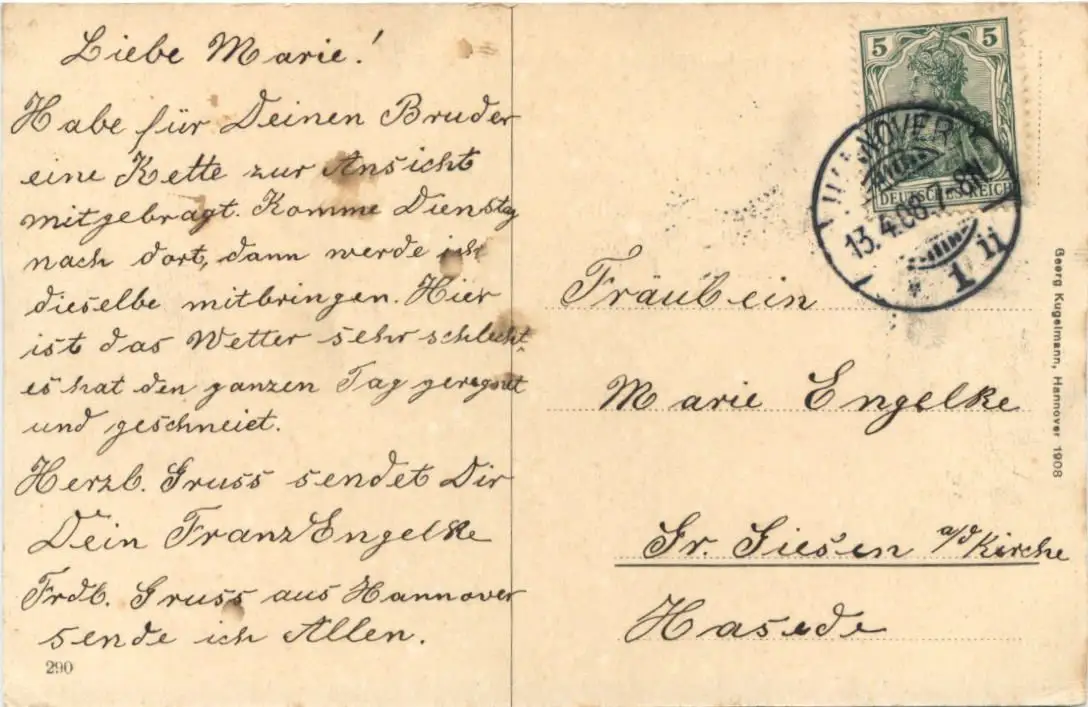 Liebe Marie!
Habe für Deinen Bruder
eine Kette zur Ansicht
mitgebragt. Komme Dienstag
nach dort, dann werde ich
dieselbe mitbringen. Hier
ist das Wetter sehr schlecht,
es hat den ganzen Tag geregnet
und geschneiet.
Herzl. Gruss sendet Dir
Dein Franz Engelke
Frdl. Gruss aus Hannover
sende ich Allen.
290
5 5
DEUTSCHES REICH
HANNOVER
13.4.08.7-8N
1 ii
Fräulein
Marie Engelke
Gr. Giesen a/d Kirche
Hasede
Georg Kugelmann, Hannover 1908